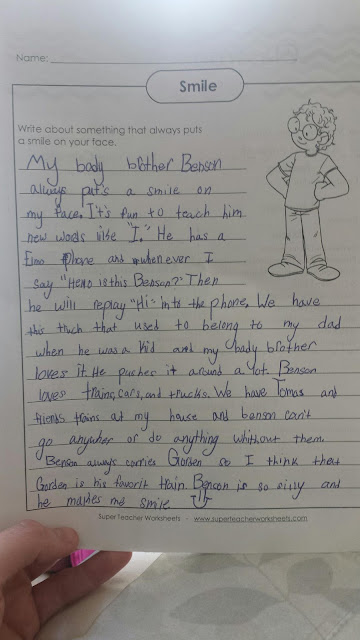 Name:
Smile
Write about something that always puts
a smile on your face.
My body brother Benson
always put's a smile on
my face. It's fun to teach him
new words like "I." He has a
Elmo Phone and whenever I
say "Hello is this Benson?" Then
he will replay "Hi" into the phone. We have
this truck that used to belong to my dad
when he was a kid and my body brother
loves it. He puches it around a lot. Benson
loves trains, cars, and trucks. We have Tomas and
friends trains at my house and benson can't
go anywher or do anything whithout them.
Benson always carries Gorden so I think that
Gorden is his favorit train. Benson is so silly and
he makes me smile
Super Teacher Worksheets - www.superteacherworksheets.com